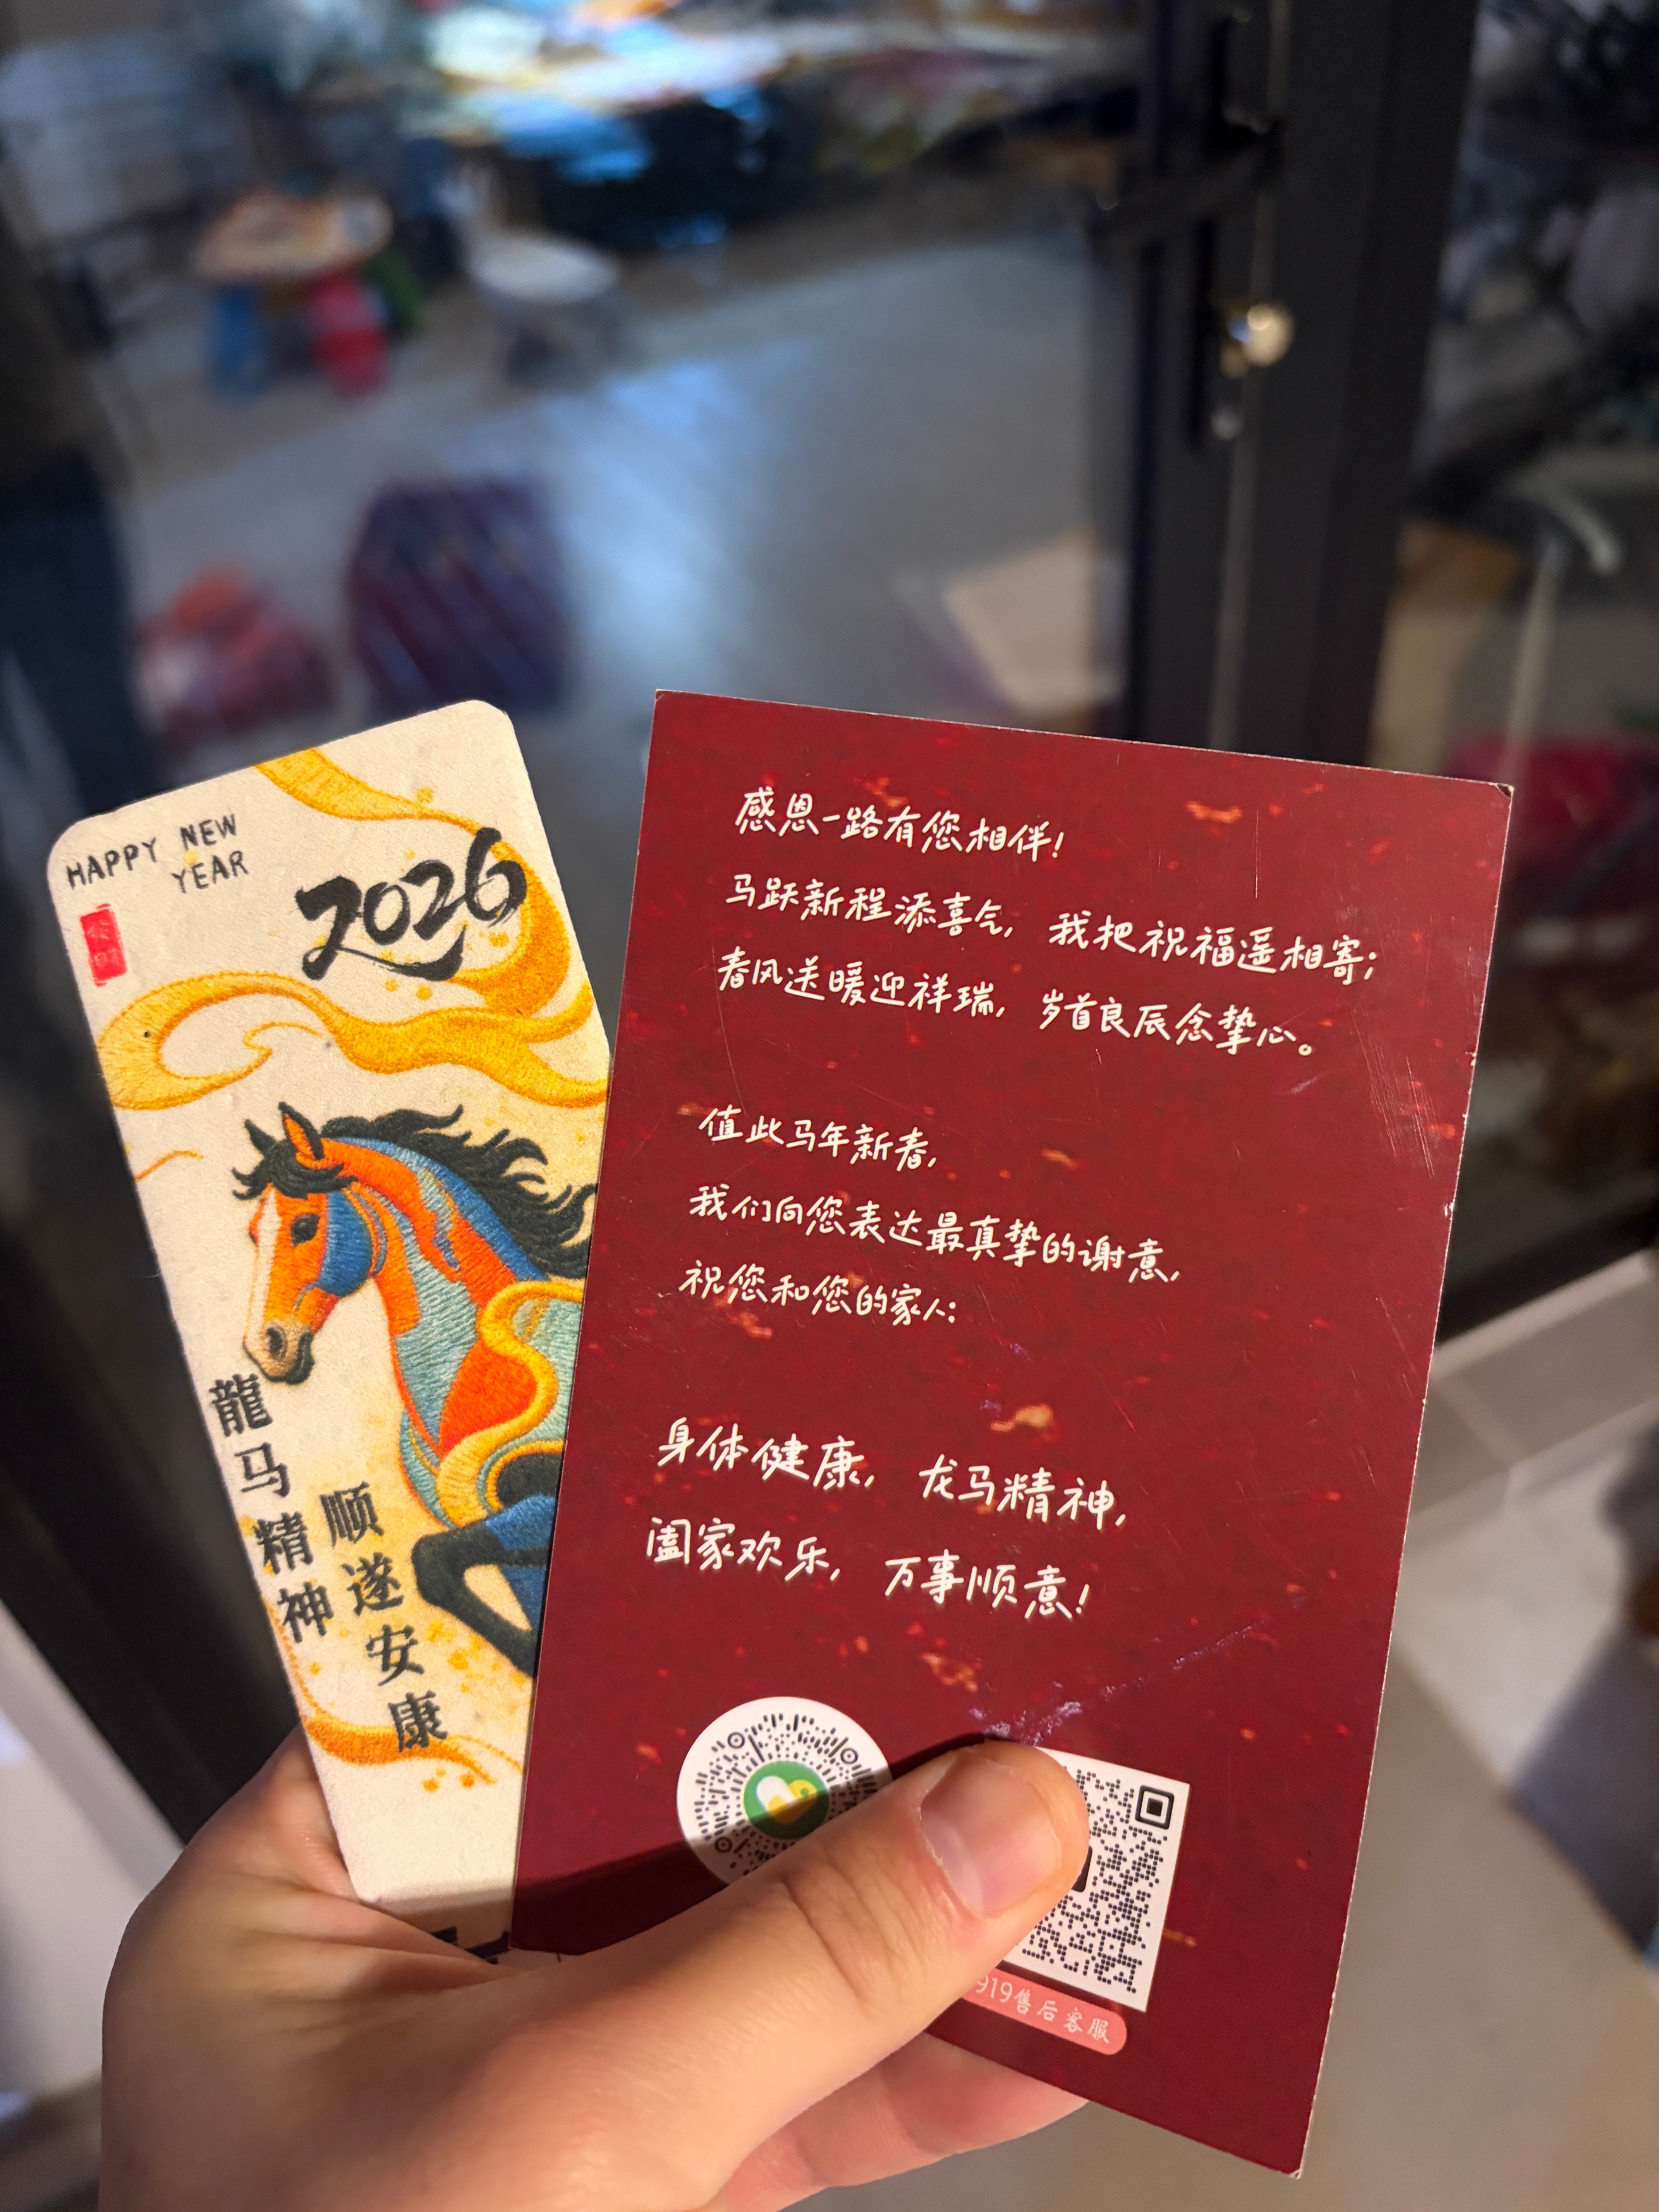 HAPPY NEW
YEAR
2026
龍马精神
顺遂安康
感恩一路有您相伴!
马跃新程添喜气, 我把祝福遥相寄;
春风送暖迎祥瑞, 岁首良辰念挚心。
值此马年新春,
我们向您表达最真挚的谢意,
祝您和您的家人:
身体健康, 龙马精神,
阖家欢乐, 万事顺意!
919售后客服